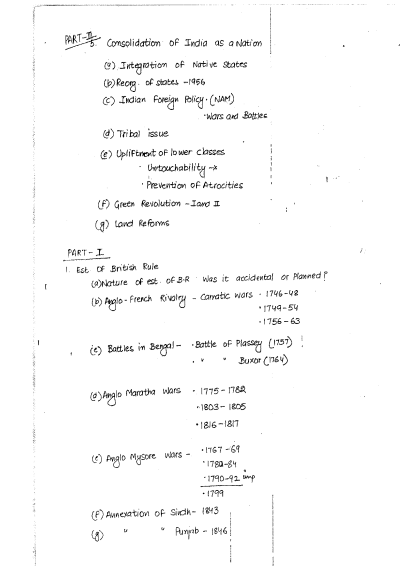 PART-III
5. Consolidation of India as a Nation
(a) Integration of Native States
(b) Reorg. of states - 1956
(c) Indian Foreign Policy. (NAM)
· Wars and Battles
(d) Tribal issue
(e) Upliftment of lower classes
· Untouchability -x
· Prevention of Atrocities
(f) Green Revolution - I and II
(g) Land Reforms
PART-I
1. Est Of British Rule
(a) Nature of est. of B.R Was it accidental or Planned?
(b) Anglo-French Rivalry - Carnatic Wars · 1746-48
· 1749-54
· 1756-63
(c) Battles in Bengal - · Battle of Plassey (1757)
· " " Buxar (1764)
(d) Anglo Maratha Wars · 1775-1782
· 1803-1805
· 1816-1817
(e) Anglo Mysore Wars - · 1767-69
· 1780-84
· 1790-92 imp
· 1799
(f) Annexation of Sindh - 1843
(g) " " Punjab - 1846